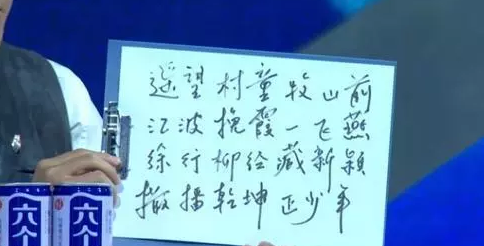 遥望村童牧山前
江波挽霞一飞燕
徐行柳径藏新颖
撒播乾坤正少年
六个
六个